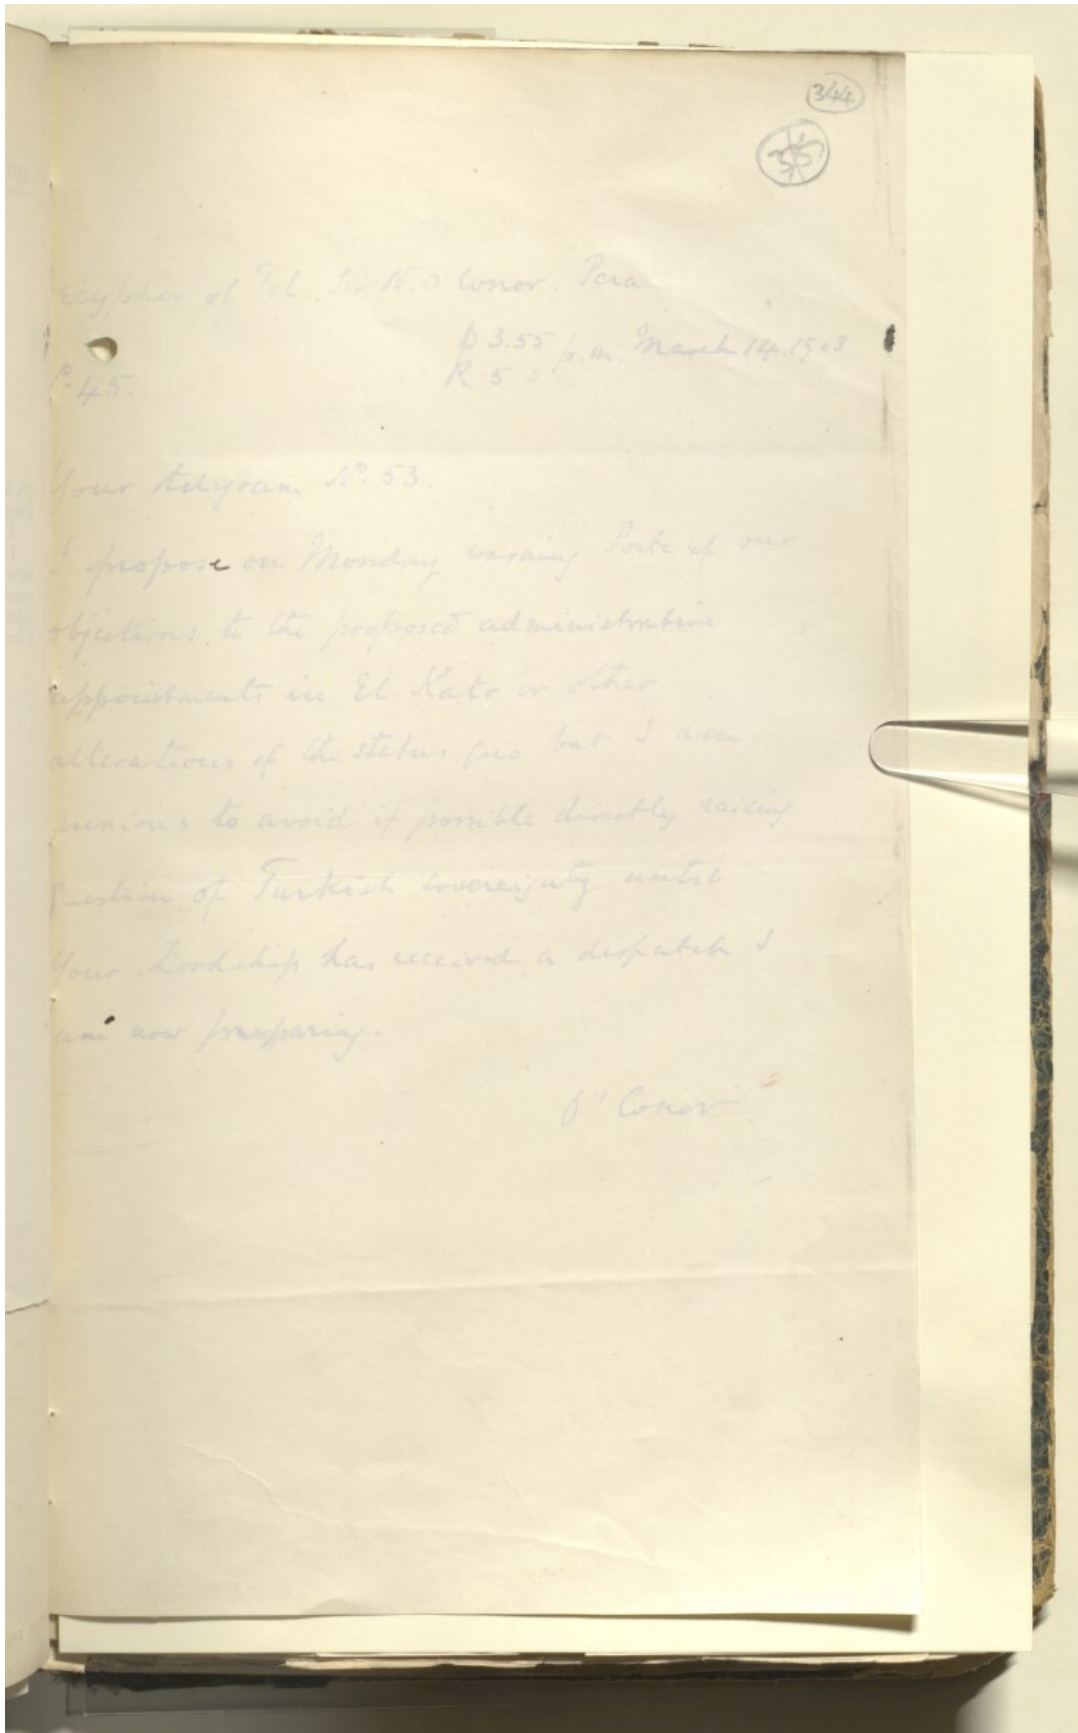 344
ecypher of Tel. Sir N. O'Conor. Pera
D 3.55 p.m. March 14. 1903
R 5.0
o. 45.
Your telegram No. 53.
I propose on Monday warning Porte of our
objections to the proposed administrative
appointments in El Katr or other
alterations of the status quo but I am
anxious to avoid if possible directly raising
question of Turkish sovereignty until
Your Lordship has received a despatch I
am now preparing.
O'Conor